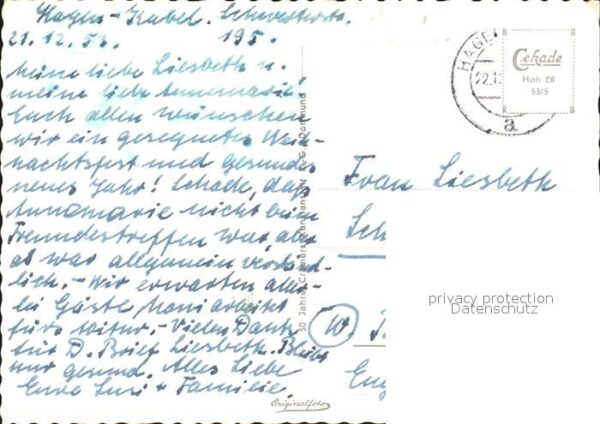 Hagen-Kabel. Schwerterstr.
21.12.53. 195.
Meine liebe Liesbeth u.
meine liebe Annemarie!
Euch allen wünschen
wir ein gesegnetes Weih-
nachtsfest und gesundes
neues Jahr! Schade, daß
Annemarie nicht beim
Freundestreffen war, aber
es war allgemein verständ-
lich. - Wir erwarten aller-
lei Gäste, arbeitet
fürs Abitur. - Vielen Dank
für D. Brief Liesbeth. Bleibt
nur gesund. Alles Liebe
Eure Susi + Familie.
50 Jahre Cramers Kunstanstalt K.G., Dortmund
Originalfoto
HAGE
22.12
a
Cekade
Han 28
53/5
Frau Liesbeth
Sch
W
privacy protection
Datenschutz